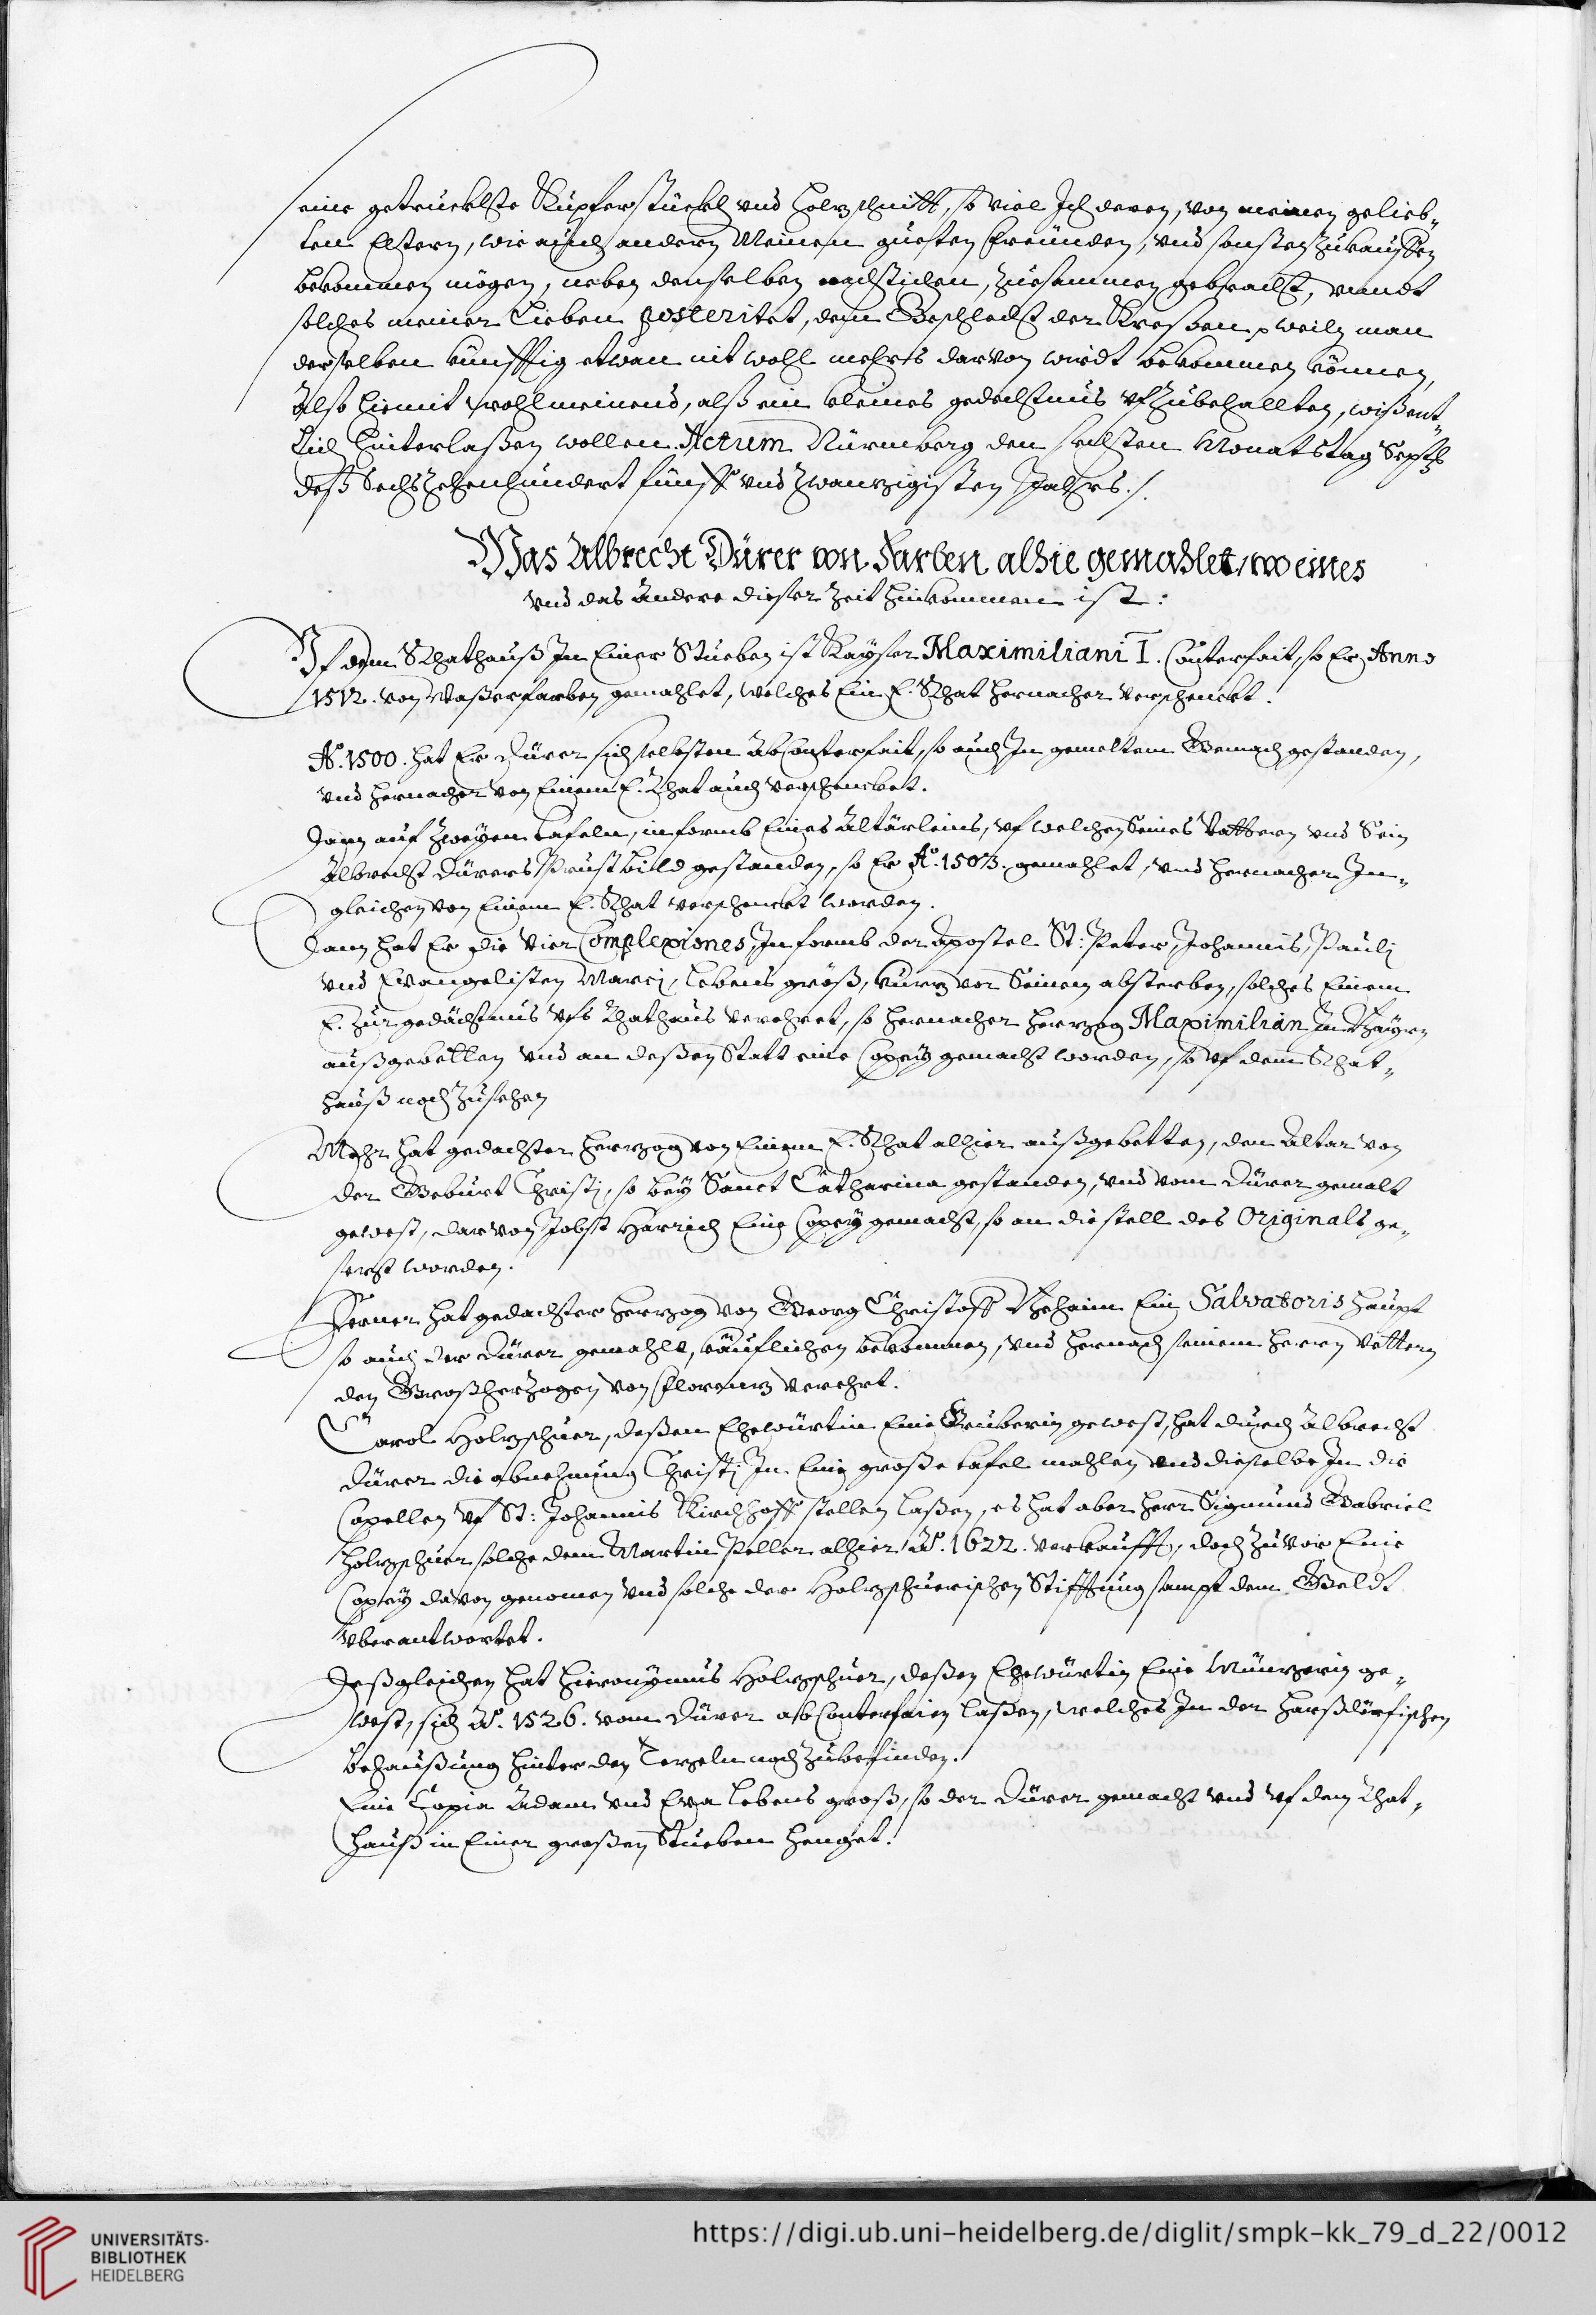 eine getruckhte Kupferstückh vnd Holzschnitt, so viel Ich deren, von meinen gelieb-
ten Eltern, wie auch andern Meinen gueten Freünden, vnd sonsten zukauffen
bekommen mögen, neben denselben nachstichen, zusammen gebracht, vnndt
solches meiner Lieben posteritet, dem Geschlecht der Kreßen, weiln man
derselben künfftig etwan nit wohl mehrs darvon wirdt bekommen können,
Also hiemit wohlmeinend, alß ein kleines gedechtnus vfzubehallten, wißent-
lich hinterlaßen wollen. Actum Nürmberg den sechsten Monatstag Septb
deß Sechszehenhundert fünff vnd zwanzigisten Jahrs./.
Was Albrecht Dürer von Farben alhie gemahlet, wo eines
vnd das Andere dieser Zeit hinkommen ist:
Vf dem Rhathauß In Einer Stueben ist Kayser Maximiliani I. Conterfait, so Er Anno
1512. von Waßerfarben gemahlet, welches Ein E. Rhat hernacher verschenckt.
Ao. 1500. hat Er Dürer sich selbsten AbConterfait, so auch In gemeltem Gemach gestanden,
vnd hernacher von Einem E. Rhat auch verschenckt.
Dann auf zweyen tafeln, in formb Eines Altärleins, vf welchen Seines Vattern vnd Sein
Albrecht Dürers Prustbild gestanden, so Er Ao. 1503. gemahlet, vnd hernacher In-
gleichen von Einem E. Rhat verschenckt worden.
Dann hat Er die Vier Complexiones, In formb der Apostel St: Peter, Johannis, Paulj
vnd Evangelisten Marcj, Lebens größ, kurz vor Seinem absterben, solches Einem
E. zur gedächtnus vfs Rhathaus verehret, so hernacher Herzog Maximilian In Bayrn
außgebetten vnd an deßen Statt eine Copey gemacht worden, so vf dem Rhat-
hauß noch zusehen
Mehr hat gedachter Herzog von Einem E. Rhat allhier außgebetten, den Altar von
der Geburt Christj, so bey Sanct Catharina gestanden, vnd vom Dürer gemalt
gewest, darvon Jobst Harrich Eine Copey gemacht, so an die stell des Originals ge-
sezt worden.
Ferner hat gedachter Herzog von Georg Christoff Beheim Ein Salvatoris haupt
so auch der Dürer gemahlt, käuflichen bekommen, vnd hernach seinem Herrn Vettern
den Großherzogen von Florenz verehrt.
Carol Holzschuer, deßen Ehewürtin Eine Gruberin gewest, hat durch Albrecht
Dürer die abnehmung Christj In Eine große tafel mahlen vnd dieselbe In die
Capellen vf St: Johannis Kirchhoff stellen laßen, es hat aber Herr Sigmund Gabriel
Holzschuer solche dem Martin Peller alhier Ao. 1622. verkaufft, doch zuvor Eine
Copey davon genomen vnd solche der Holzschuerischen Stifftung sampt dem Geldt
vberantwortet.
Deßgleichen hat Hieronymus Holzschuer, deßen Ehewürtin Eine Münzerin ge-
west, sich Ao. 1526. vom Dürer abConterfaien laßen, welches In der Harßdörfischen
behaußung hinter den Tezeln noch zubefinden.
Eine Copia Adam vnd Eva Lebens groß, so der Dürer gemacht vnd vf dem Rhat-
hauß in Einer großen Stueben henget.
UNIVERSITÄTS-
BIBLIOTHEK
HEIDELBERG
https://digi.ub.uni-heidelberg.de/diglit/smpk-kk_79_d_22/0012